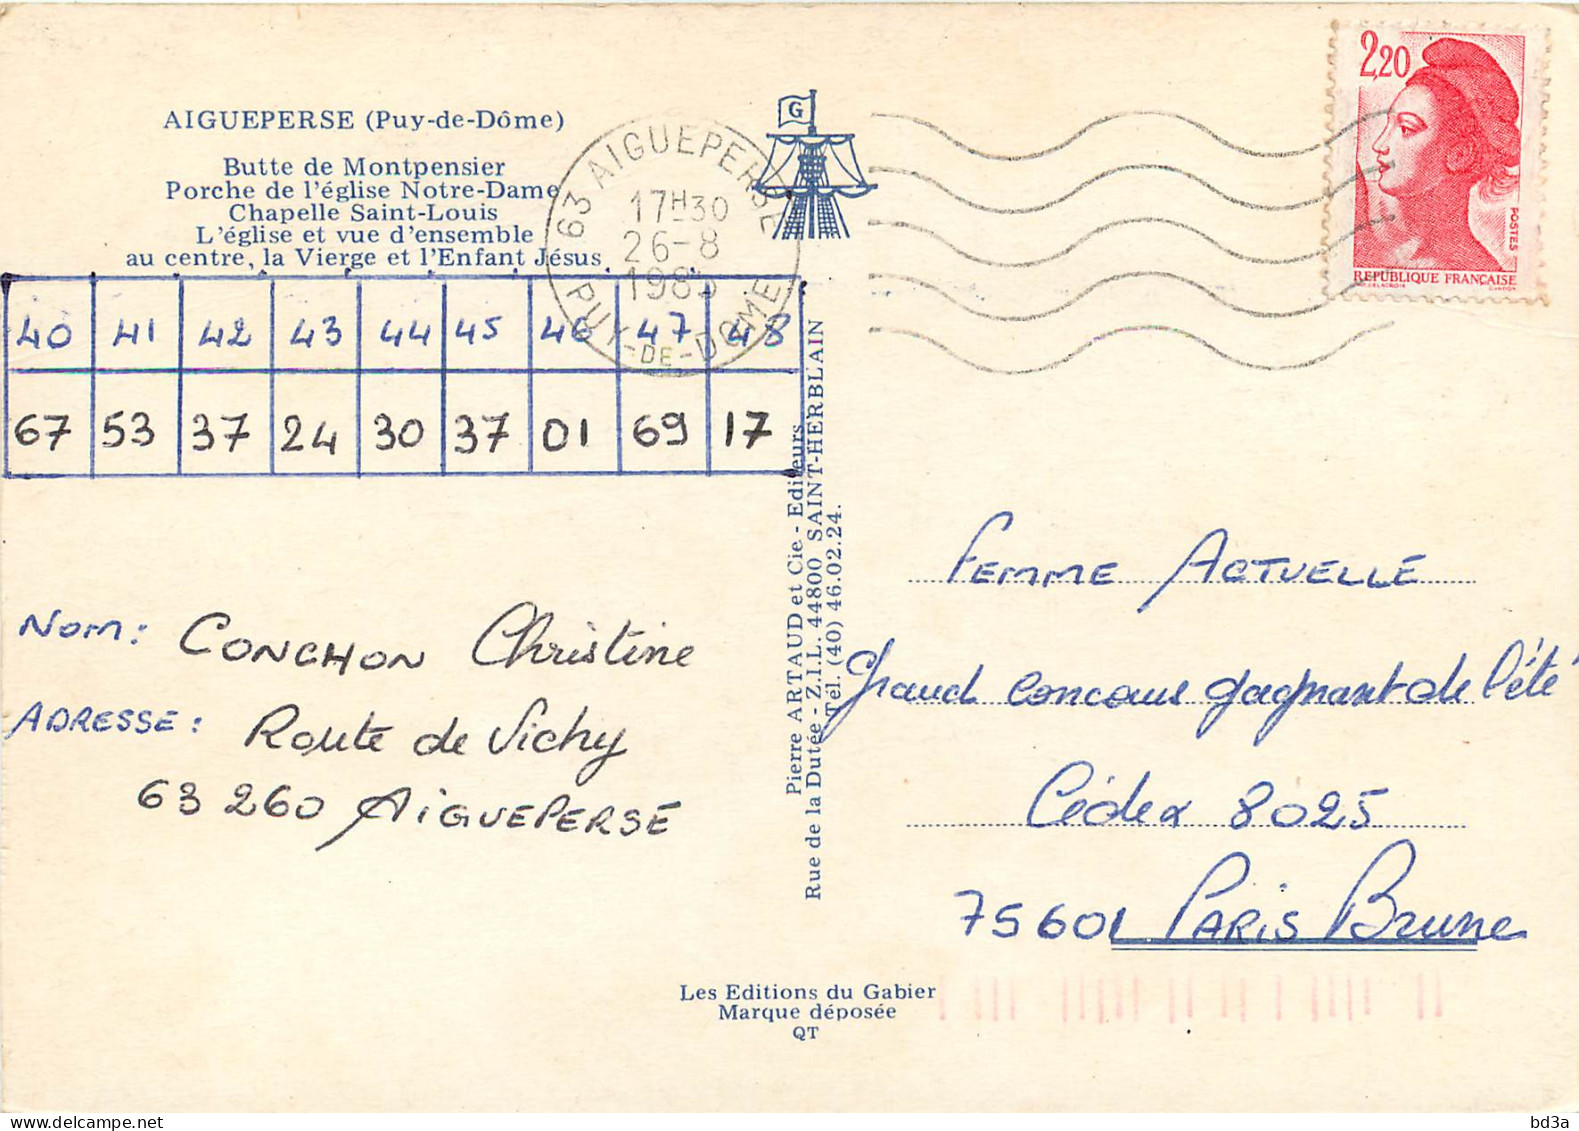 AIGUEPERSE (Puy-de-Dôme)
Butte de Montpensier
Porche de l'église Notre-Dame
Chapelle Saint-Louis
L'église et vue d'ensemble
au centre, la Vierge et l'Enfant Jésus
G
63 AIGUEPERSE
17H30
26-8
1985
PUY-DE-DOME
2,20
POSTES
REPUBLIQUE FRANÇAISE
40 41 42 43 44 45 46 47 48
67 53 37 24 30 37 01 69 17
Nom: CONCHON Christine
ADRESSE: Route de Vichy
63 260 AIGUEPERSE
Pierre ARTAUD et Cie - Editeurs
Rue de la Dutée - Z.I.L. 44800 SAINT-HERBLAIN
Tél. (40) 46.02.24.
FEMME ACTUELLE
Grand concours gagnant de l'été
Cédex 8025
75601 PARIS Brune
Les Editions du Gabier
Marque déposée
QT
delcampe.net
bd3a